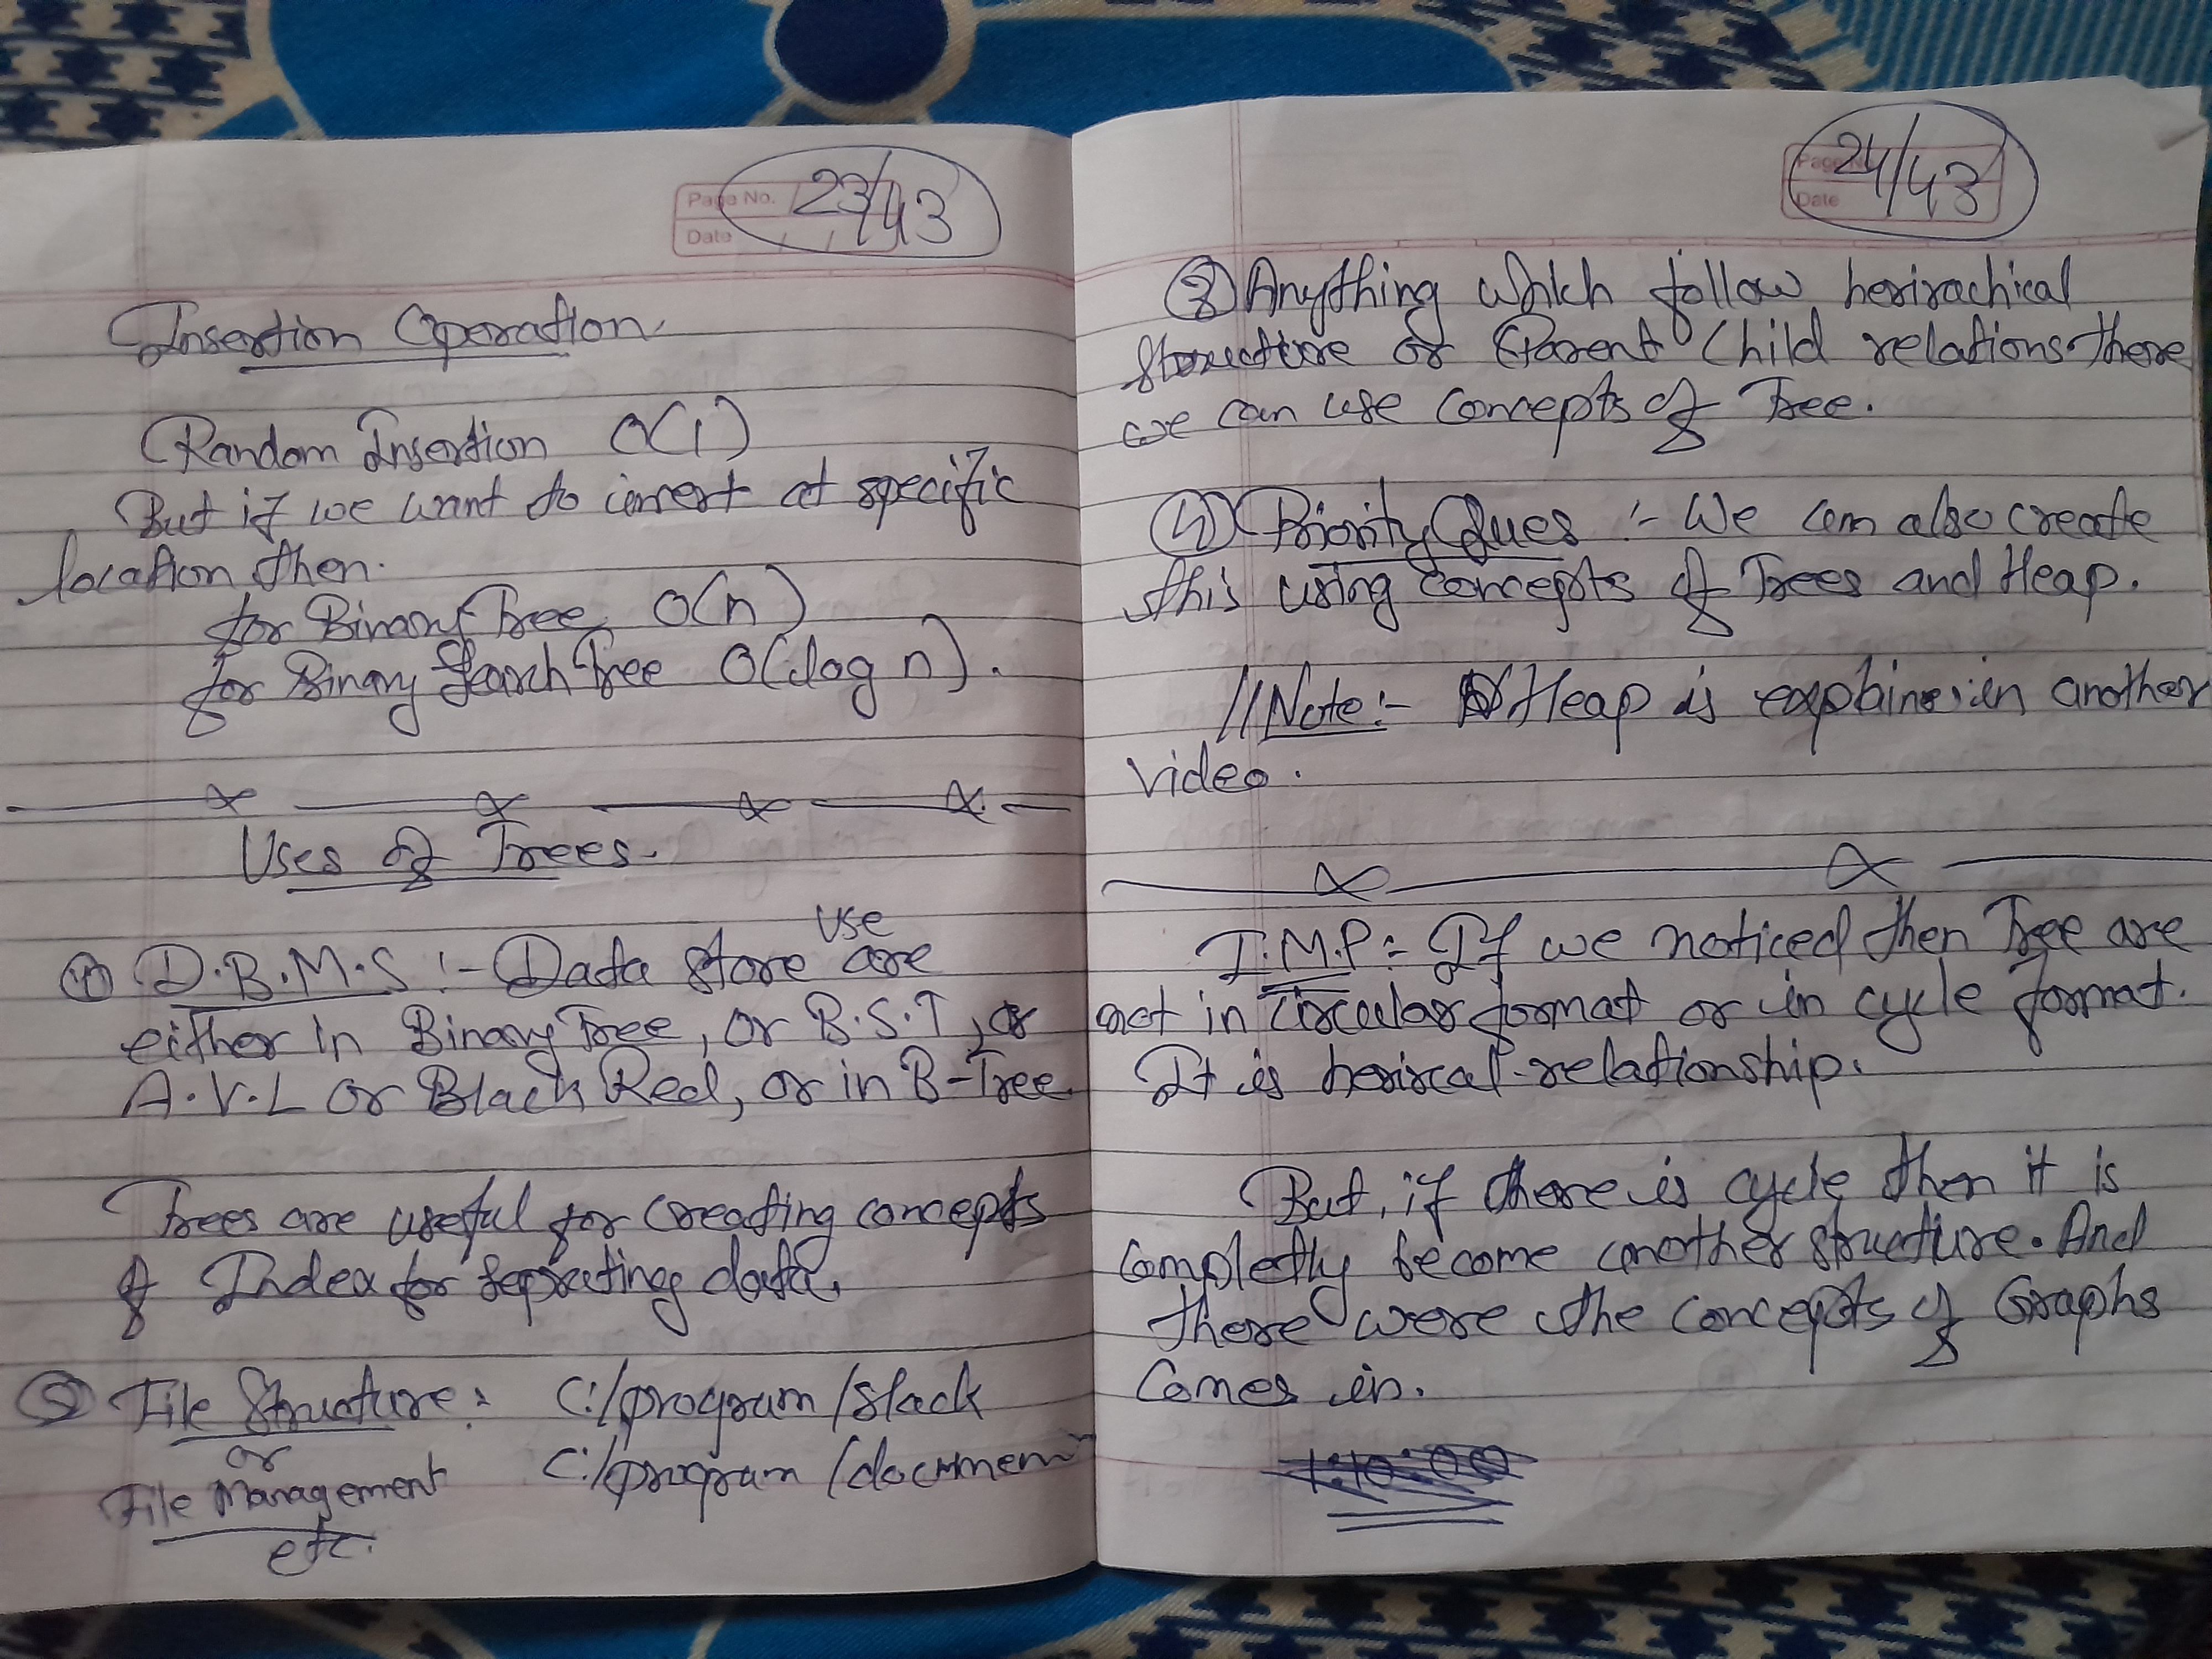 Page No.
Date / /
23/43
Insertion Operation
Random Insertion O(1)
But if we want to insert at specific
location then.
for Binary Tree O(n)
for Binary Search Tree O(log n).
Uses of Trees.
① D.B.M.S :- Data store are
use
either in Binary Tree, or B.S.T, or
A.V.L or Black Red, or in B-Tree.
Trees are useful for creating concepts
of Index for seprating data.
② File Structure: C:/program/slack
or
File Management C:/program/documen
etc.
Page No
Date
24/43
③ Anything which follow heirachical
structure or Parent Child relations there
we can use concepts of Tree.
④ Priority Ques :- we can also create
this using concepts of Trees and Heap.
//Note:- Heap is explaine in another
video.
I.M.P:- If we noticed then Tree are
not in circular format or in cycle format.
It is heirical relationship.
But, if there is cycle then it is
completly become another structure. And
these were the concepts of Graphs
comes in.
1:10:00